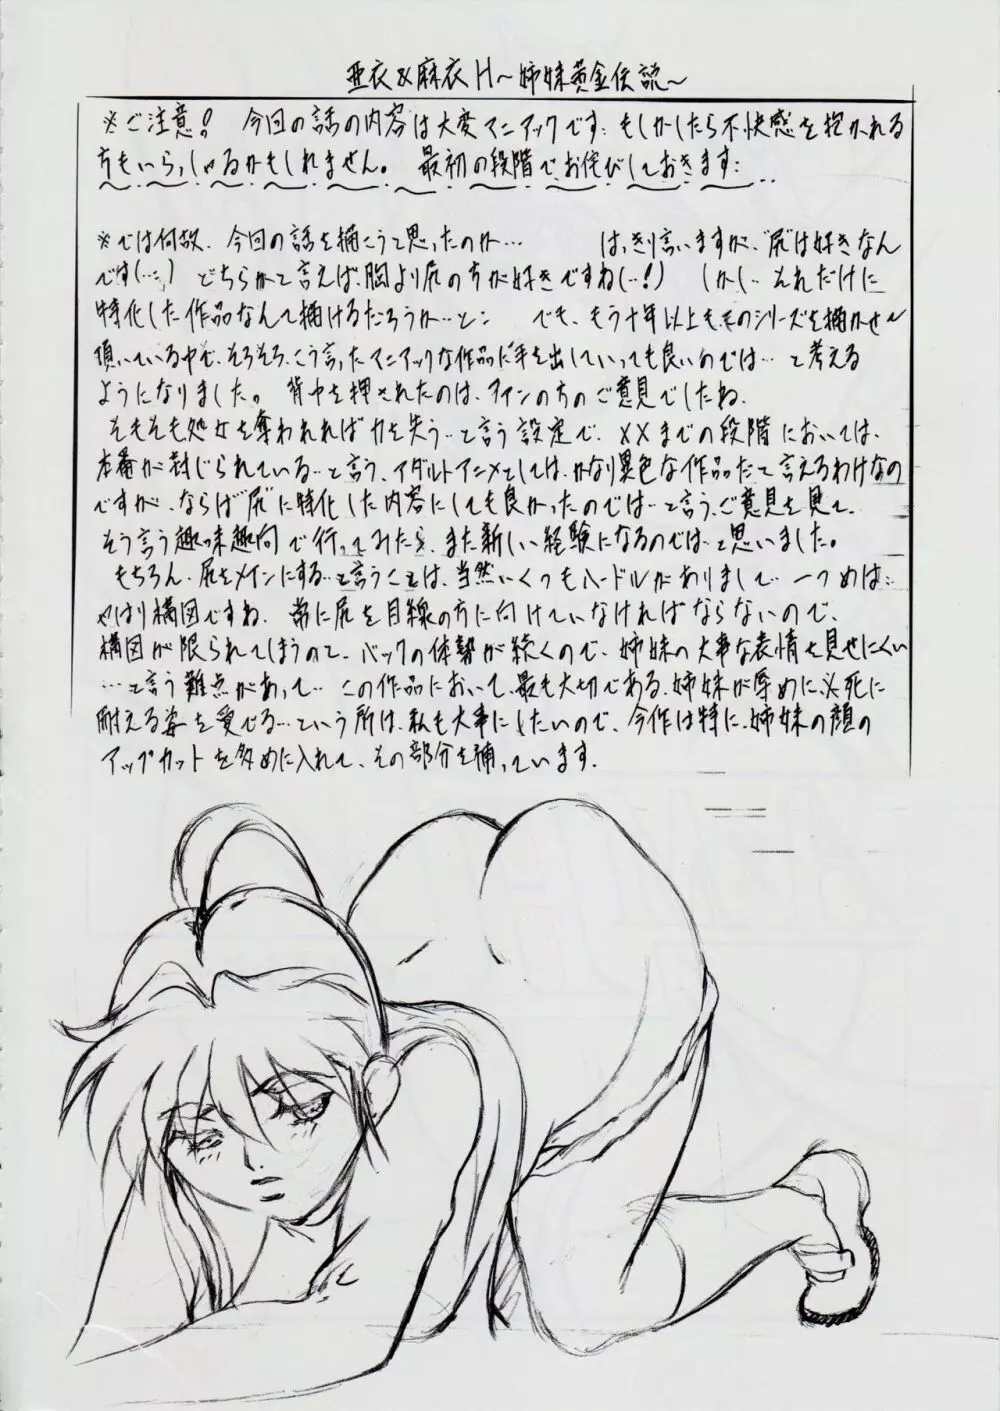 亜衣&麻衣H～姉妹黄金伝説～
※ご注意! 今回の話の内容は大変マニアックです… もしかしたら不快感を抱かれる
方もいらっしゃるかもしれません。 最初の段階でお侘びしておきます…
※では何故、今回の話を描こうと思ったのか… はっきり言いますが、“尻”は好きなん
です(…) どちらかと言えば、胸より尻の方が好きですね(…!) しかし… それだけに
特化した作品なんて描けるだろうか…と… でも、もう十年以上もそのシリーズを描かせて
頂いている中で、そろそろ、こう言ったマニアックな作品に手を出していっても良いのでは…と考える
ようになりました。 背中を押されたのは、ファンの方のご意見でしたね。
そもそも処女を奪われれば力を失う…と言う設定で、××までの段階においては、
本番が封じられている…と言う、アダルトアニメとしては、かなり異色な作品だと言えるわけなの
ですが、ならば“尻”に特化した内容にしても良かったのでは…と言う、ご意見を見て、
そう言う趣味趣向で行ってみたら、また新しい経験になるのでは…と思いました。
もちろん、尻をメインにする…と言うことは、当然いくつもハードルがありまして… 一つめは…
やはり構図ですね。 常に尻を目線の方に向けていなければならないので、
構図が限られてしまうのと、バックの体勢が続くので、姉妹の大事な表情を見せにくい
…と言う難点があって… この作品において、最も大切である、姉妹が辱めに、必死に
耐える姿を愛でる…という所は、私も大事にしたいので、今作は特に、姉妹の顔の
アップカットを多めに入れて、その部分を補っています。